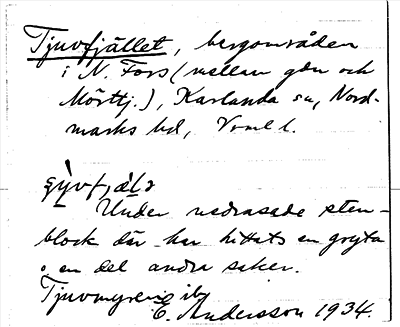 Tjuvfjället, bergområden
i N. Fors (mellan gdn och
Mörttj.), Karlanda sn, Nord-
marks hd, Vrml l.
Under nedrasade sten-
block där har hittats en gryta
o. en del andra saker.
Tjuvmyren ibm
E. Andersson 1934.